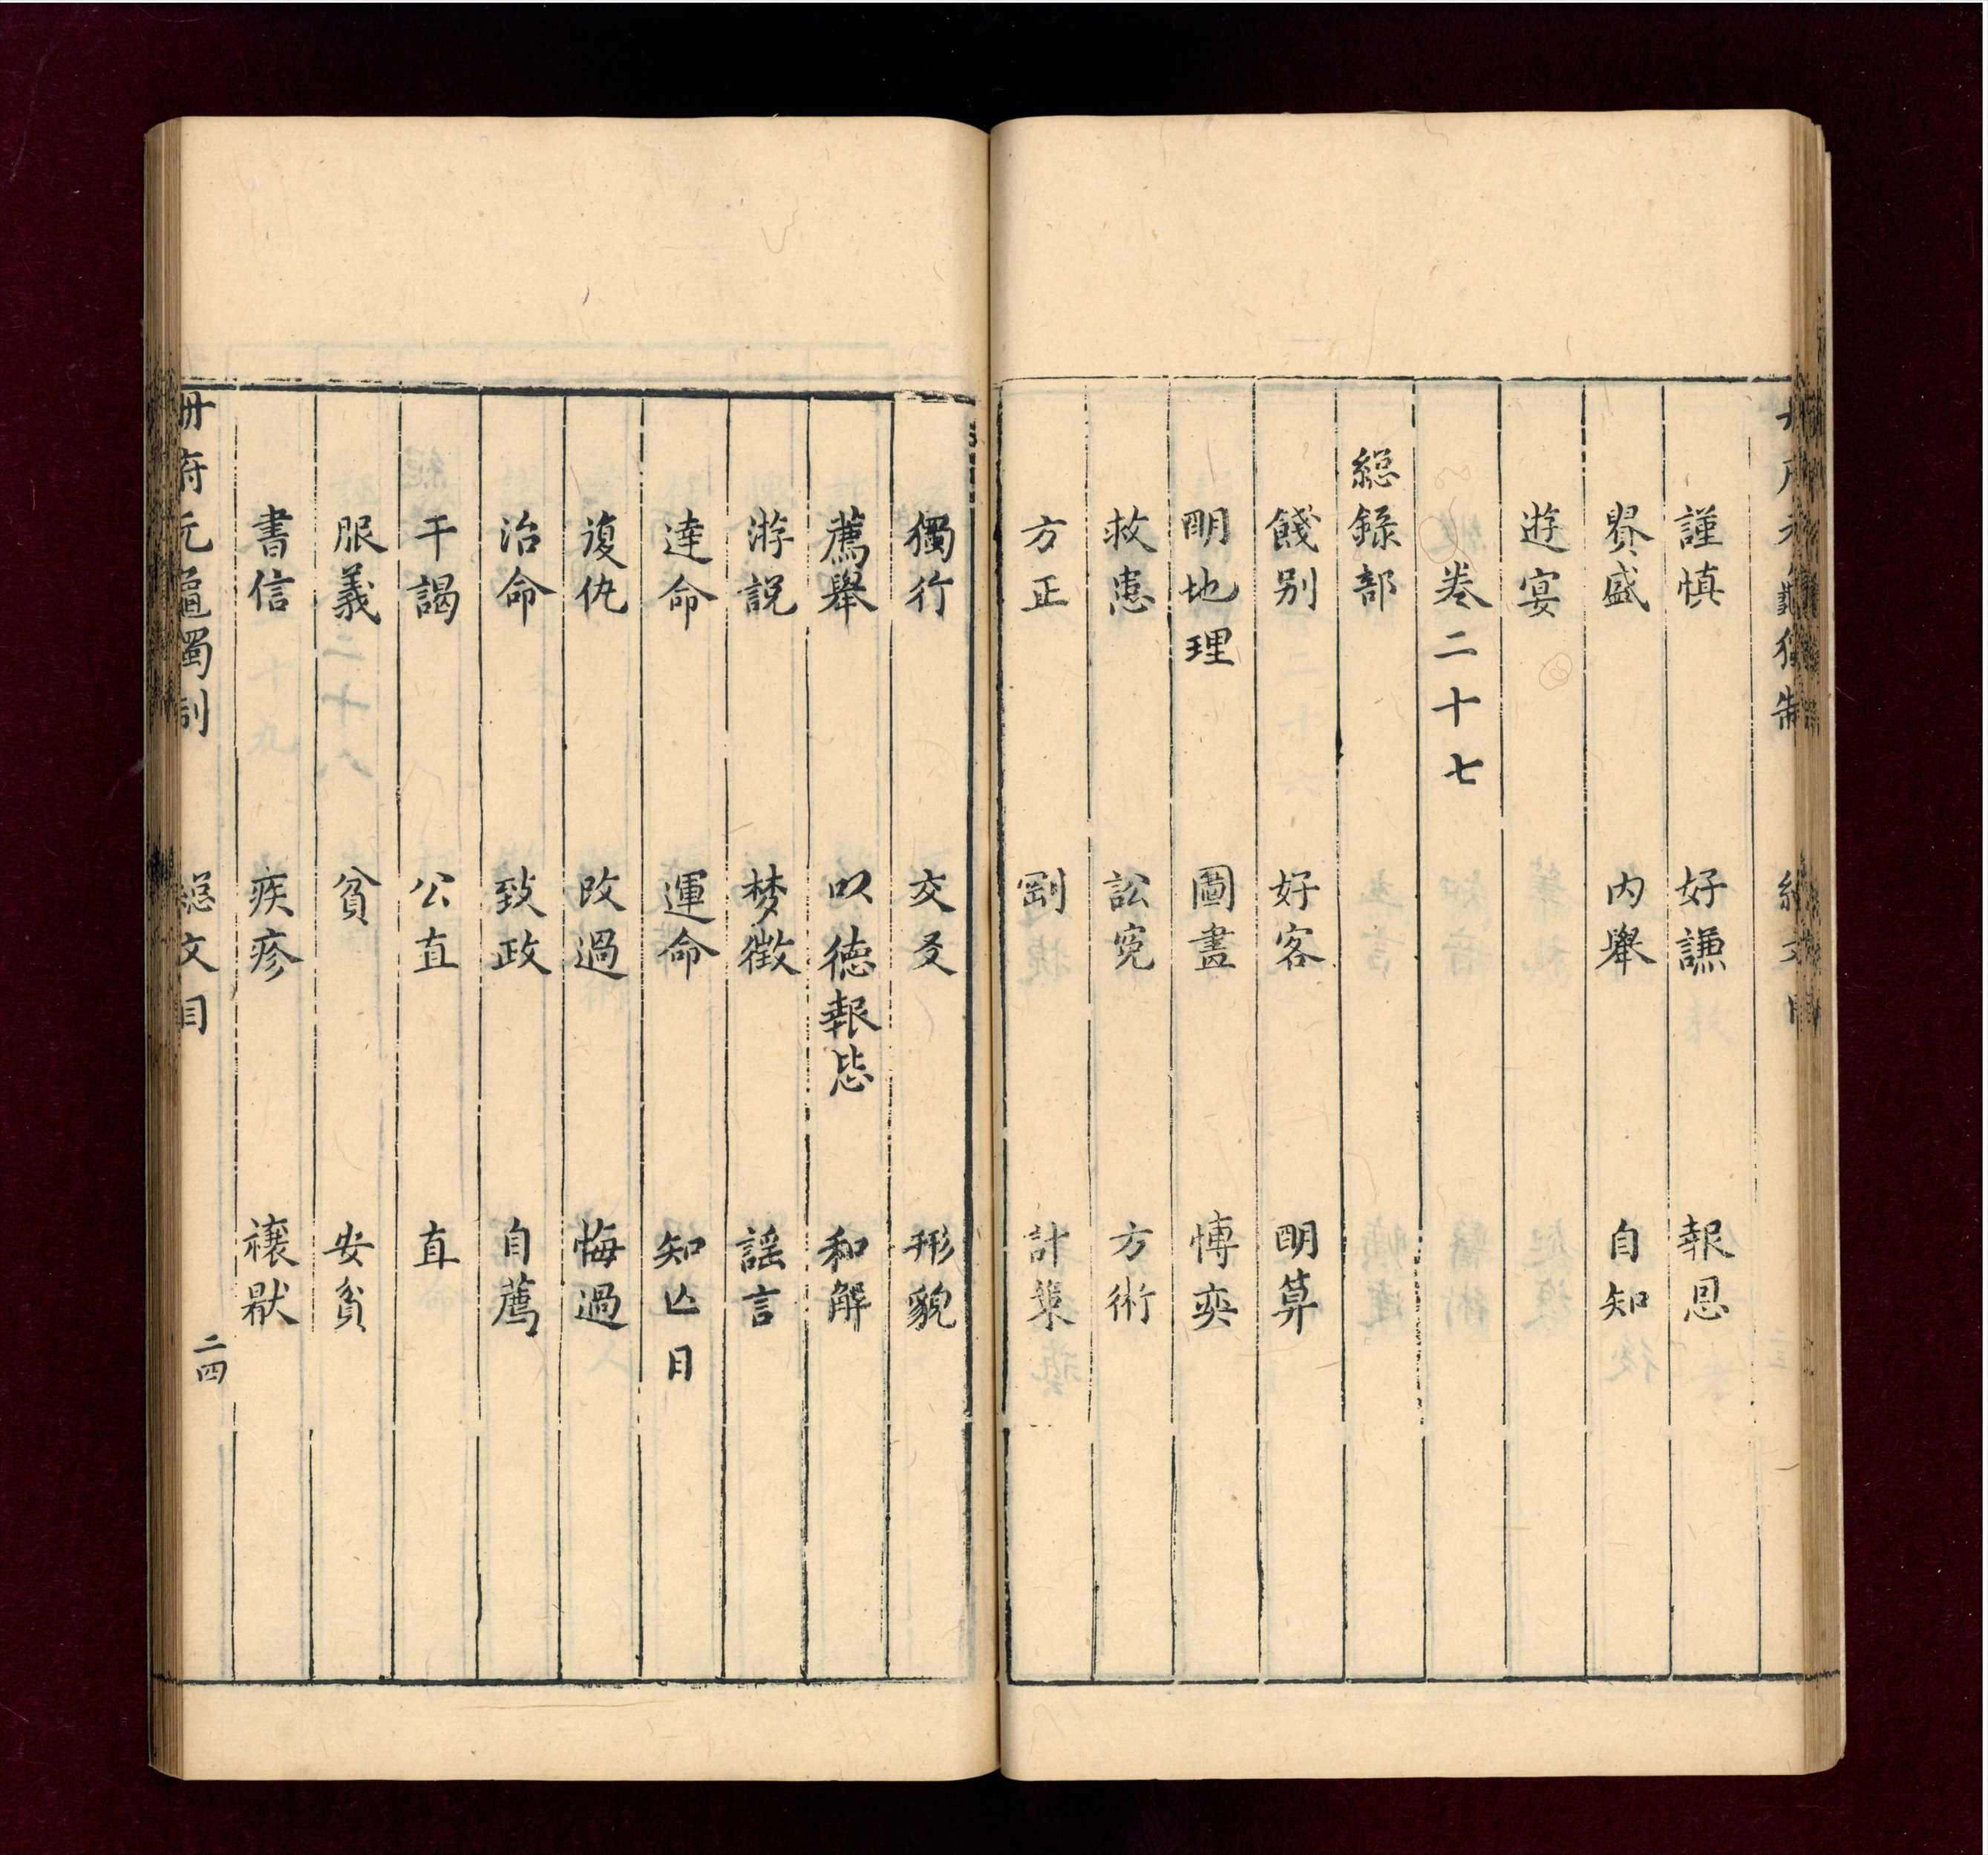 謹慎 好謙 報恩
㒷盛 内舉 自知
遊宴
卷二十七
総録部
餞别 好客 明算
明地理 圖畫 博奕
救患 訟寃 方術
方正 剛 計策
獨行 交友 形貌
薦舉 以德報怨 和解
游説 梦徵 謡言
達命 運命 知亡日
復仇 改過 悔過
治命 致政 自薦
干謁 公直 直
服義 貧 安貧
書信 疾疹 禳猒
册府元龜獨制 総文目 二四